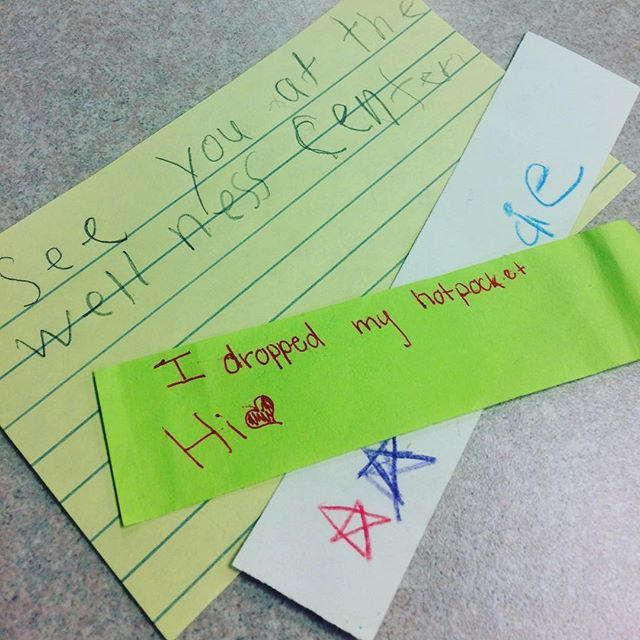 See you at the
wellness Center
I dropped my hotpocket
Hi